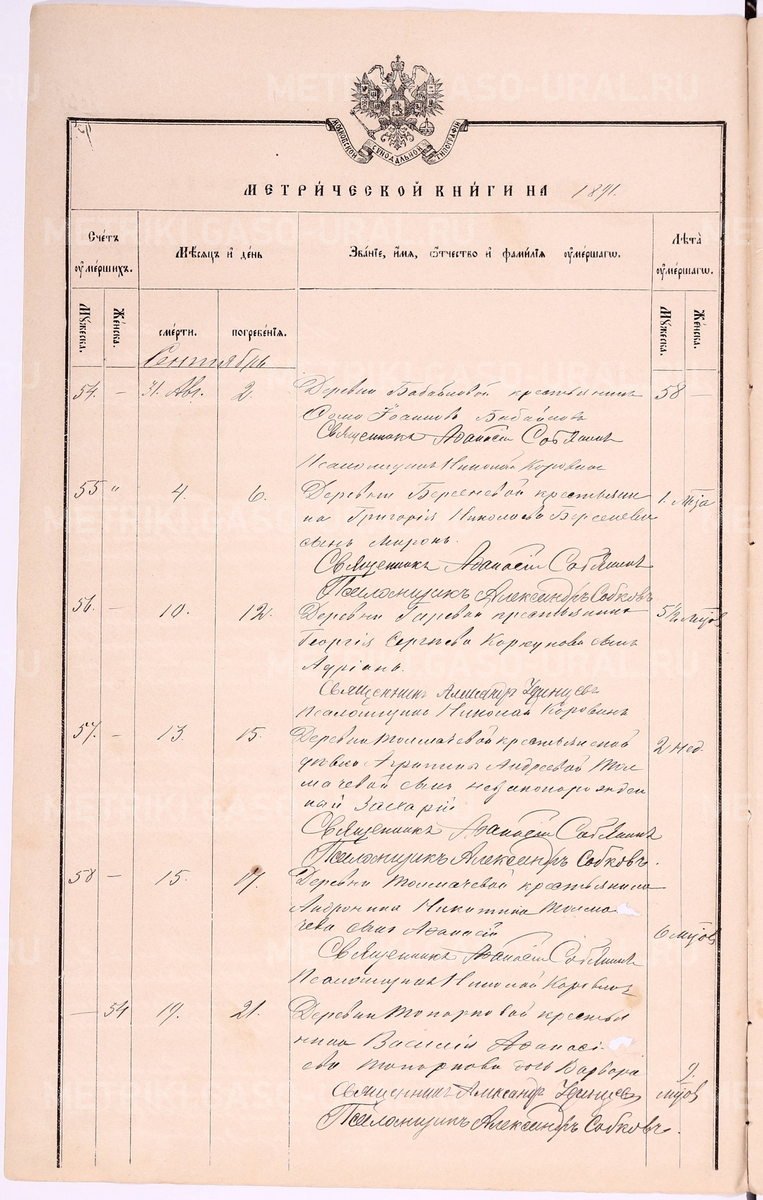 МОСКОВСКОЙ СѴНОДАЛЬНОЙ ТИПОГРАФІИ
МЕТРИ́ЧЕСКОЙ КНИ́ГИ НА 1891.
Сче́тъ ᲂумершихъ.
Мѣсяцъ и день
Зва́нїе, и́мя, ѻ́тчество и фами́лїя ᲂуме́ршагѡ.
Лѣта ᲂуме́ршагѡ.
Мужеска. Женска. сме́рти. погребе́нїя. Мужеска. Женска.
Сентябрь
54. — 31. Авг. 2. Деревни Бабайловой крестьянинъ 58 —
Іоанновъ Бабайловъ
Священникъ Аѳанасій
Псаломщикъ Николай Коровинъ
55 " 4. 6. Деревни Берсеневой крестьяни 1. мца
на Григорія Николаева Берсенева
сынъ Миронъ.
Священникъ Аѳанасій
Псаломщикъ Александръ Собковъ
56. — 10. 12. Деревни Гаревой крестьянина
Георгія Сергѣева Коркунова сынъ
Адріанъ.
Священникъ Александръ Удинцевъ
Псаломщикъ Николай Коровинъ
57. — 13. 15. Деревни Толмачевой крестьянской 2 нед.
дѣвки Агрипины Андреевой Тол
мачевой сынъ незаконорожден
ный Захарій
Священникъ Аѳанасій
Псаломщикъ Александръ Собковъ.
58 — 15. 17. Деревни Толмачевой крестьянина
Андроника Никитина Толма
чева сынъ Аѳанасій 6 мцов
Священникъ Аѳанасій
Псаломщикъ Николай Коровинъ
— 54 19. 21. Деревни Топорковой крестья
нина Василія Аѳанасі
ева Топоркова дочь Варвара 9.
Священникъ Александръ Удинцевъ мцов
Псаломщикъ Александръ Собковъ.
METRIKI.GASO-URAL.RU